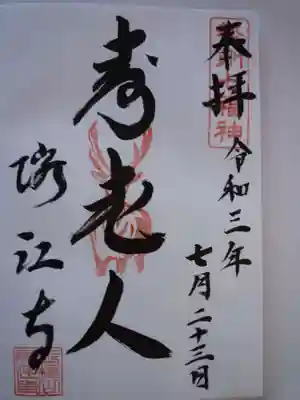 奉拝
令和三年
七月二十三日
寿老人
瑞江寺